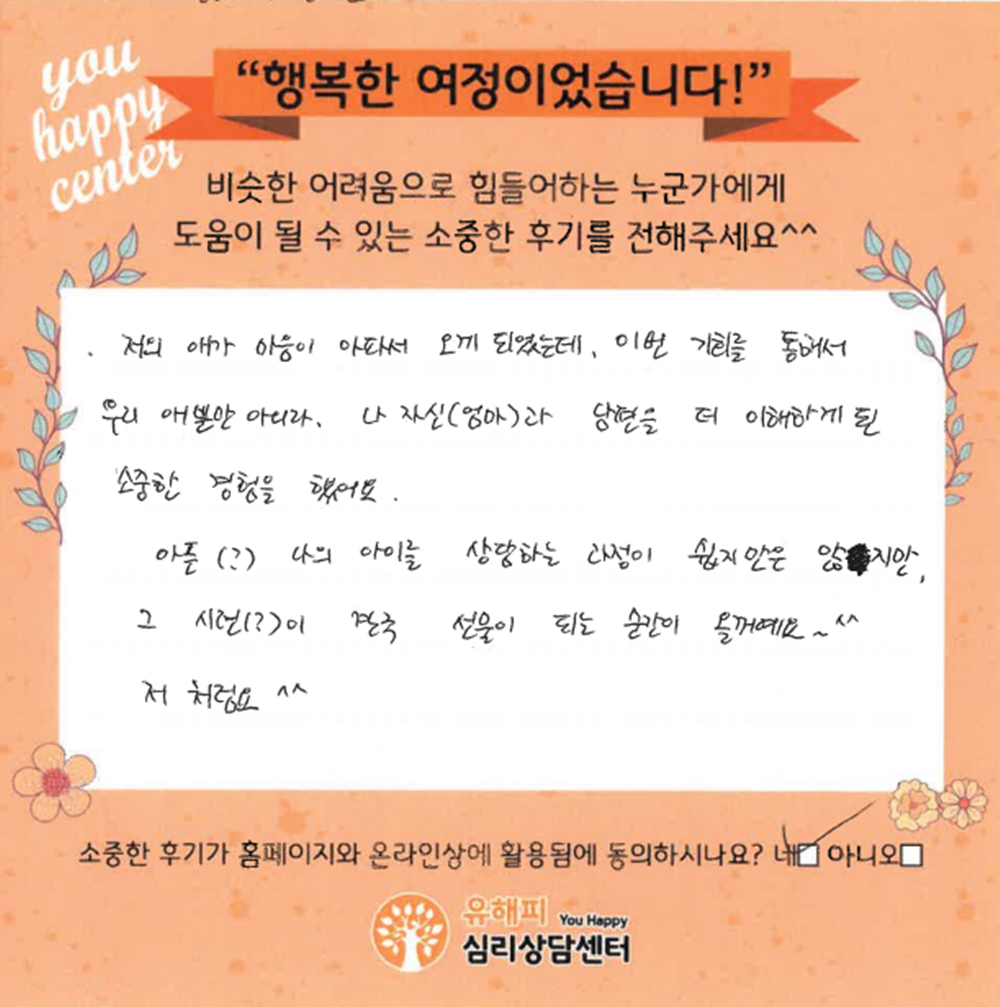 you
happy
center
“행복한 여정이었습니다!”
비슷한 어려움으로 힘들어하는 누군가에게
도움이 될 수 있는 소중한 후기를 전해주세요^^
. 저의 애가 마음이 아파서 오게 되었는데, 이번 기회를 통해서
우리 애뿐만 아니라, 나 자신(엄마)과 남편을 더 이해하게 된
소중한 경험을 했어요.
아픈(?) 나의 아이를 상담하는 과정이 쉽지만은 않지만,
그 시련(?)이 결국 선물이 되는 순간이 올꺼예요~^^
저 처럼요 ^^
소중한 후기가 홈페이지와 온라인상에 활용됨에 동의하시나요? 네 아니오
유해피 You Happy
심리상담센터